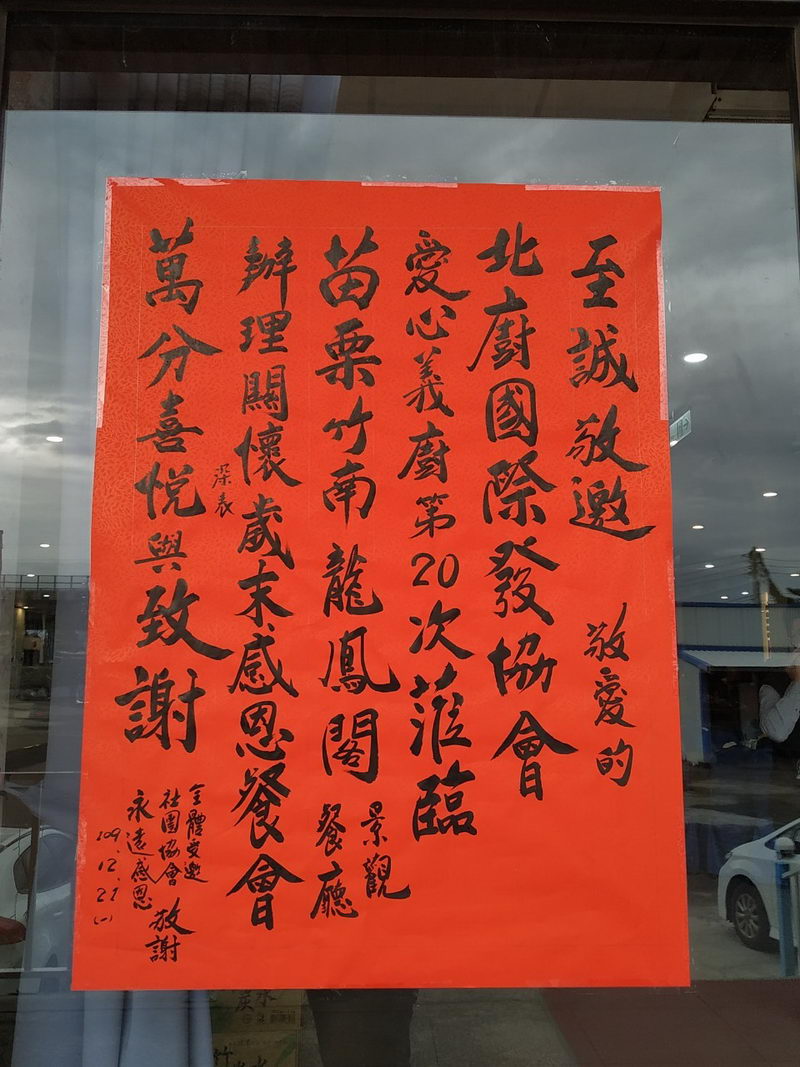 至誠敬邀 敬愛的
北廚國際發協會
愛心義廚第20次蒞臨
苗栗竹南龍鳳閣景觀餐廳
辦理關懷歲末感恩餐會
深表
萬分喜悅與致謝
全體受邀
社團協會 敬謝
永遠感恩
109.12.21(一)